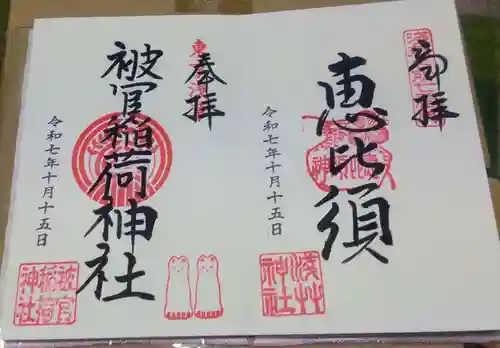 奉拝
恵比須
令和七年十月十五日
浅草
神社
奉拝
被官稲荷神社
令和七年十月十五日
被官
稲荷
神社